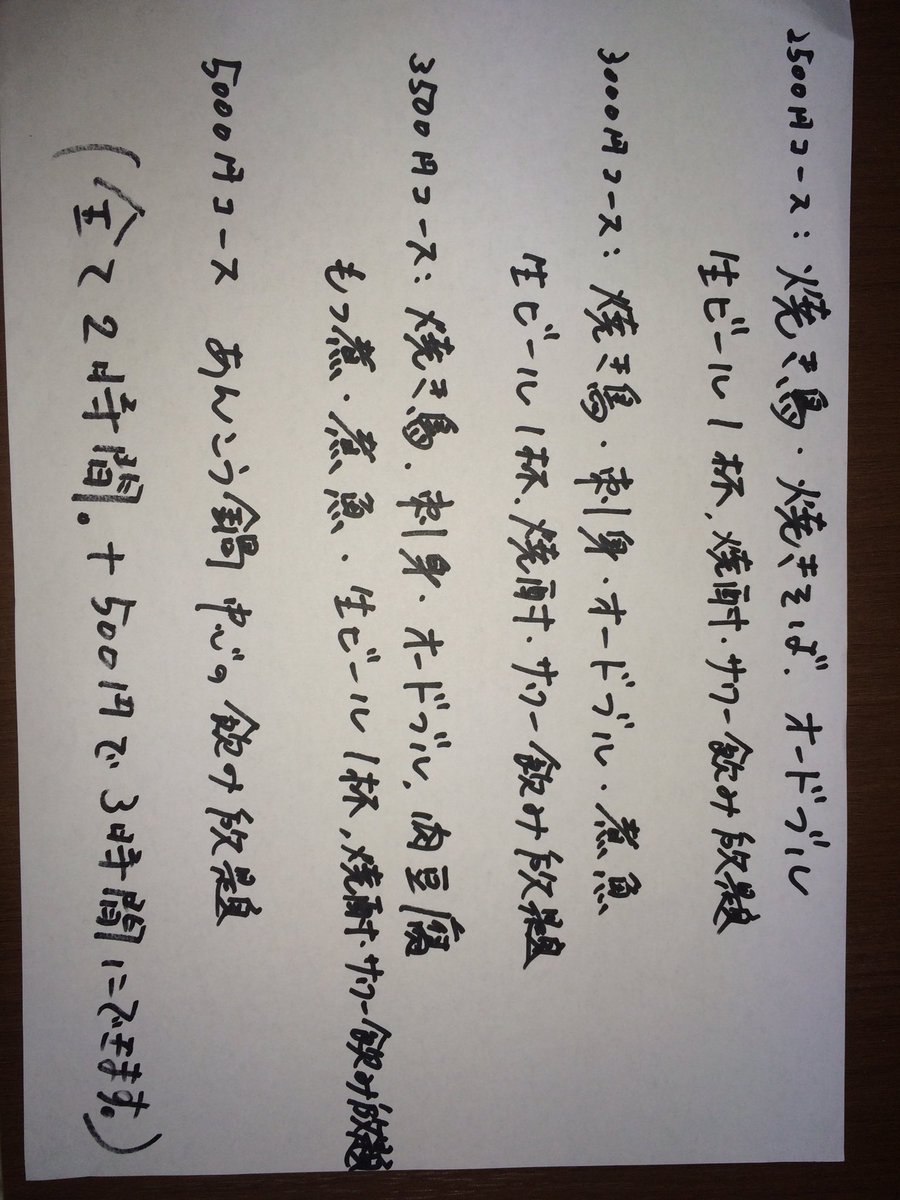 2500円コース:焼き鳥・焼きそば、オードブル
生ビール1杯、焼酎・サワー飲み放題
3000円コース:焼き鳥・刺身・オードブル・煮魚
生ビール1杯、焼酎・サワー飲み放題
3500円コース:焼き鳥・刺身・オードブル、肉豆腐
もつ煮・煮魚・生ビール1杯、焼酎・サワー飲み放題
5000円コース あんこう鍋 中心の飲み放題
(全て2時間。+500円で3時間にできます。)